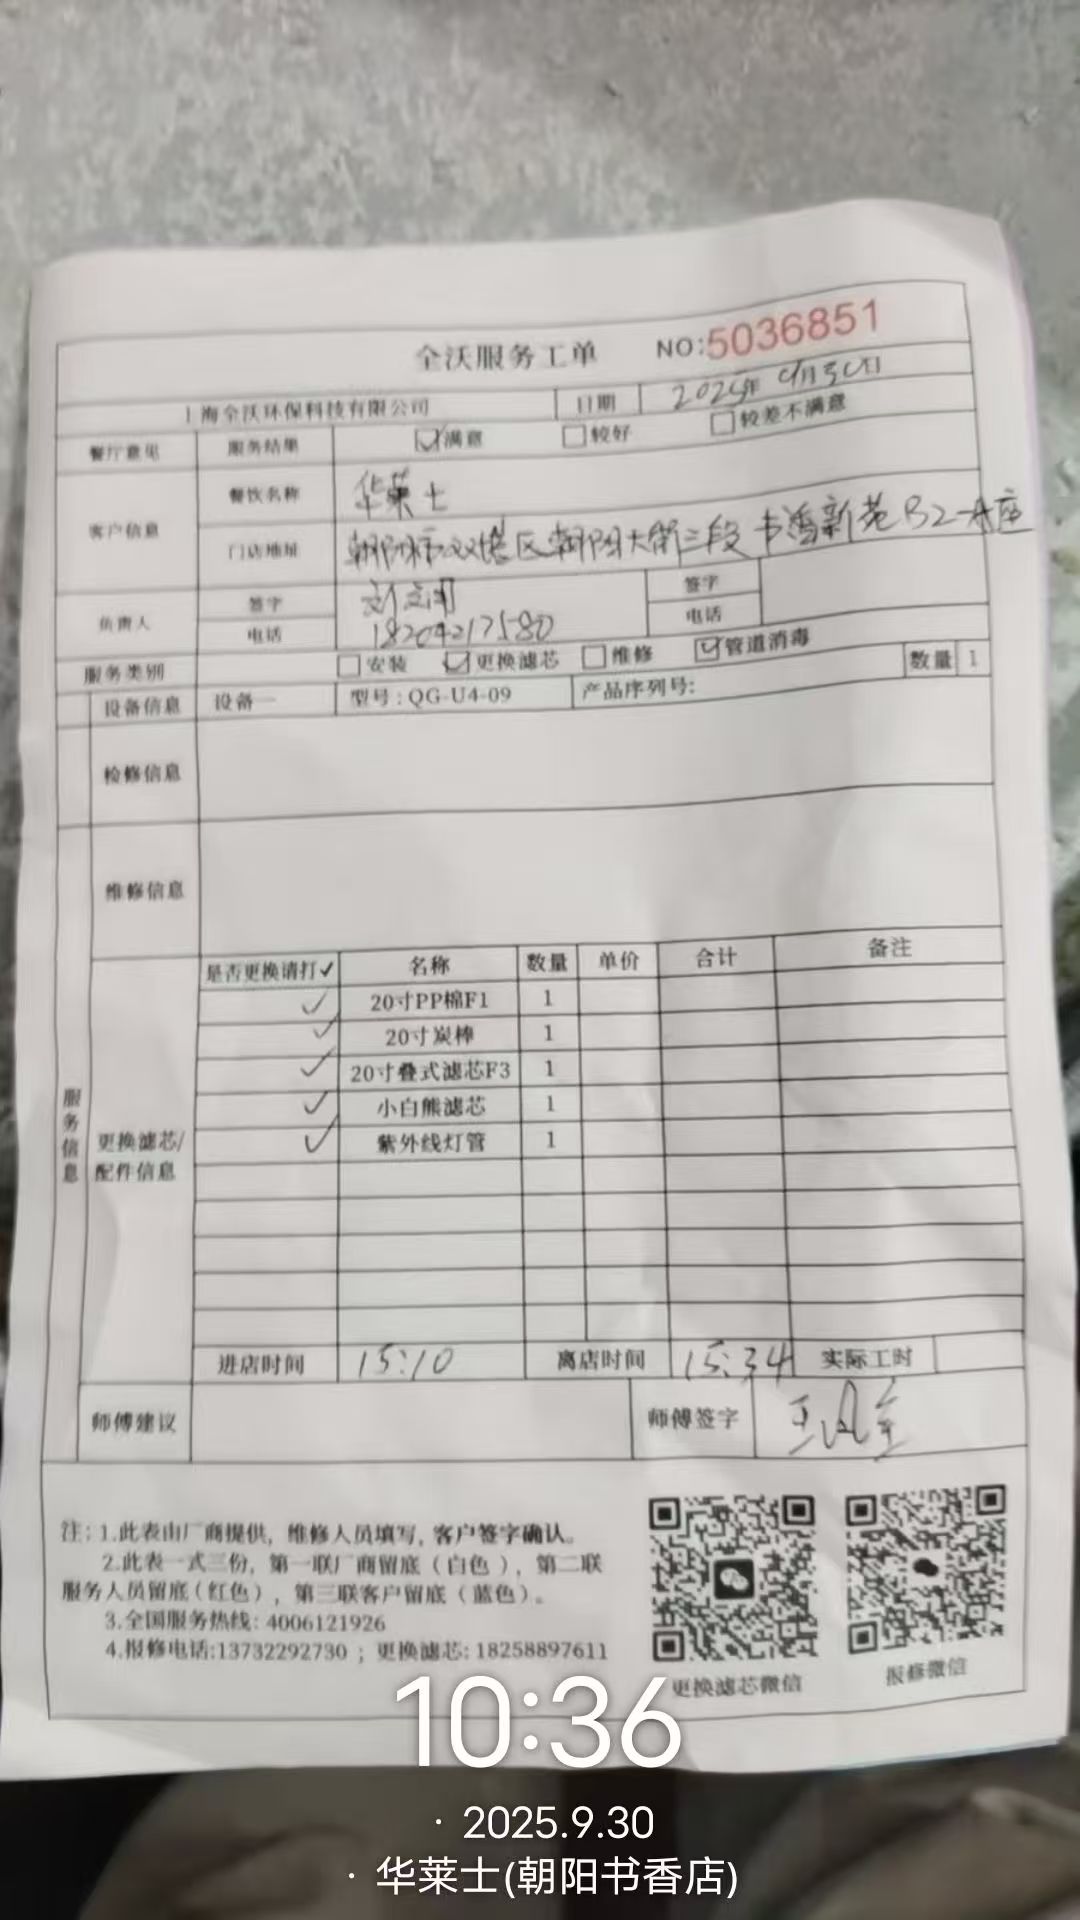 全沃服务工单 NO:5036851
上海全沃环保科技有限公司 日期 2025年9月30日
餐厅意见 服务结果 ☑满意 □较好 □较差不满意
客户信息 餐饮名称 华莱士
门店地址 朝阳市双塔区朝阳大街三段书香新苑B2-A座
负责人 签字 签字
电话 18204217580 电话
服务类别 □安装 ☑更换滤芯 □维修 ☑管道消毒 数量 1
设备信息 设备一 型号:QG-U4-09 产品序列号:
检修信息
维修信息
服务信息
更换滤芯/
配件信息
是否更换请打✓ 名称 数量 单价 合计 备注
✓ 20寸PP棉F1 1
✓ 20寸炭棒 1
✓ 20寸叠式滤芯F3 1
✓ 小白熊滤芯 1
✓ 紫外线灯管 1
进店时间 15:10 离店时间 15:34 实际工时
师傅建议 师傅签字
注: 1.此表由厂商提供, 维修人员填写, 客户签字确认。
2.此表一式三份, 第一联厂商留底(白色), 第二联
服务人员留底(红色), 第三联客户留底(蓝色)。
3.全国服务热线: 4006121926
4.报修电话:13732292730 ; 更换滤芯: 18258897611
更换滤芯微信 报修微信
10:36
· 2025.9.30
· 华莱士(朝阳书香店)